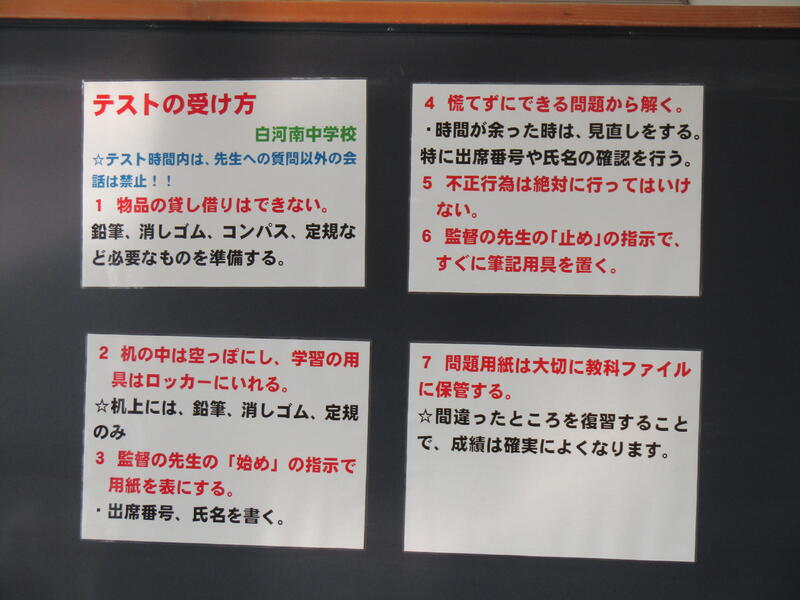 テストの受け方
白河南中学校
☆テスト時間内は、先生への質問以外の会
話は禁止！！
1 物品の貸し借りはできない。
鉛筆、消しゴム、コンパス、定規な
ど必要なものを準備する。
2 机の中は空っぽにし、学習の用
具はロッカーにいれる。
☆机上には、鉛筆、消しゴム、定規
のみ
3 監督の先生の「始め」の指示で
用紙を表にする。
・出席番号、氏名を書く。
4 慌てずにできる問題から解く。
・時間が余った時は、見直しをする。
特に出席番号や氏名の確認を行う。
5 不正行為は絶対に行ってはいけ
ない。
6 監督の先生の「止め」の指示で、
すぐに筆記用具を置く。
7 問題用紙は大切に教科ファイル
に保管する。
☆間違ったところを復習すること
で、成績は確実によくなります。